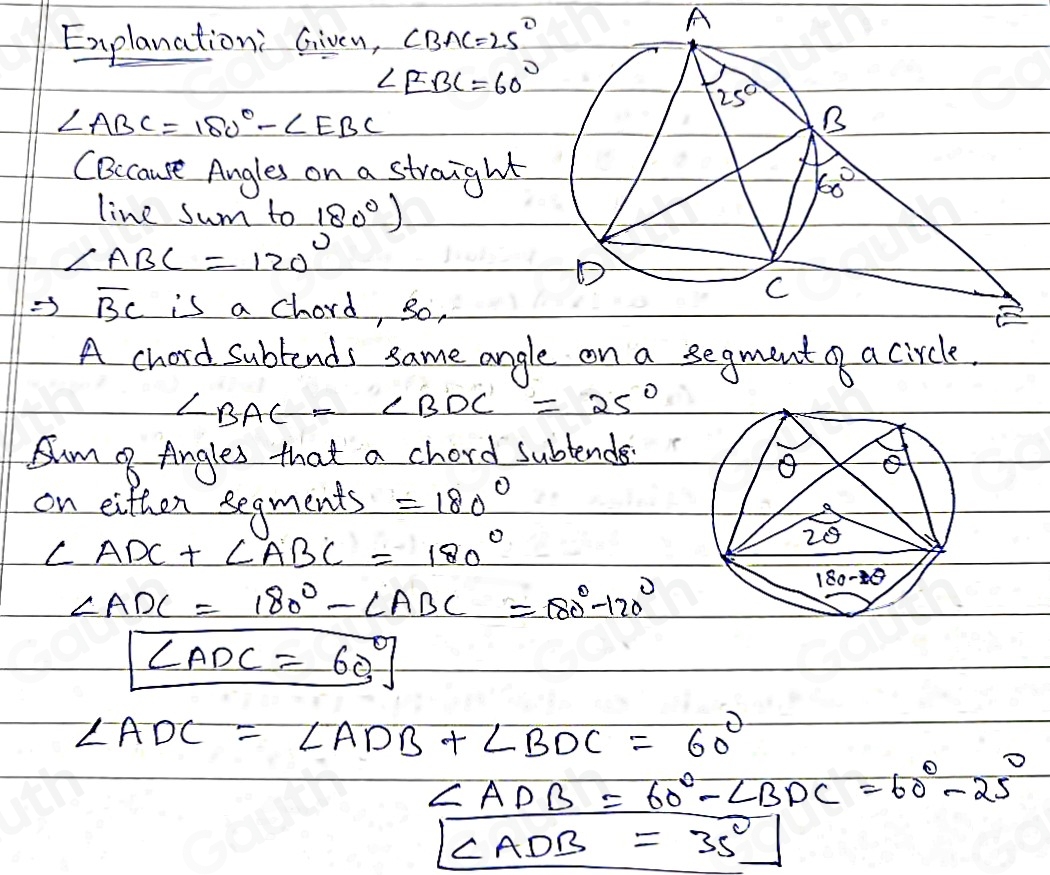 Explanation: Given, ∠BAC=25°
∠EBC=60°
∠ABC = 180° - ∠EBC
(Because Angles on a straight
line sum to 180°)
∠ABC = 120°
⇒ BC is a chord, so,
A chord subtends same angle on a segment of a circle.
∠BAC = ∠BDC = 25°
Sum of Angles that a chord subtends
on either segments = 180°
∠ADC + ∠ABC = 180°
∠ADC = 180° - ∠ABC = 180°-120°
∠ADC = 60°
∠ADC = ∠ADB + ∠BDC = 60°
∠ADB = 60° - ∠BDC = 60° - 25°
∠ADB = 35°
A
25°
B
60°
D
C
E
θ θ
2θ
180-θ
Gauth